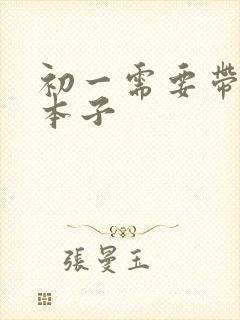 初一需要帶
本子
張曼玉